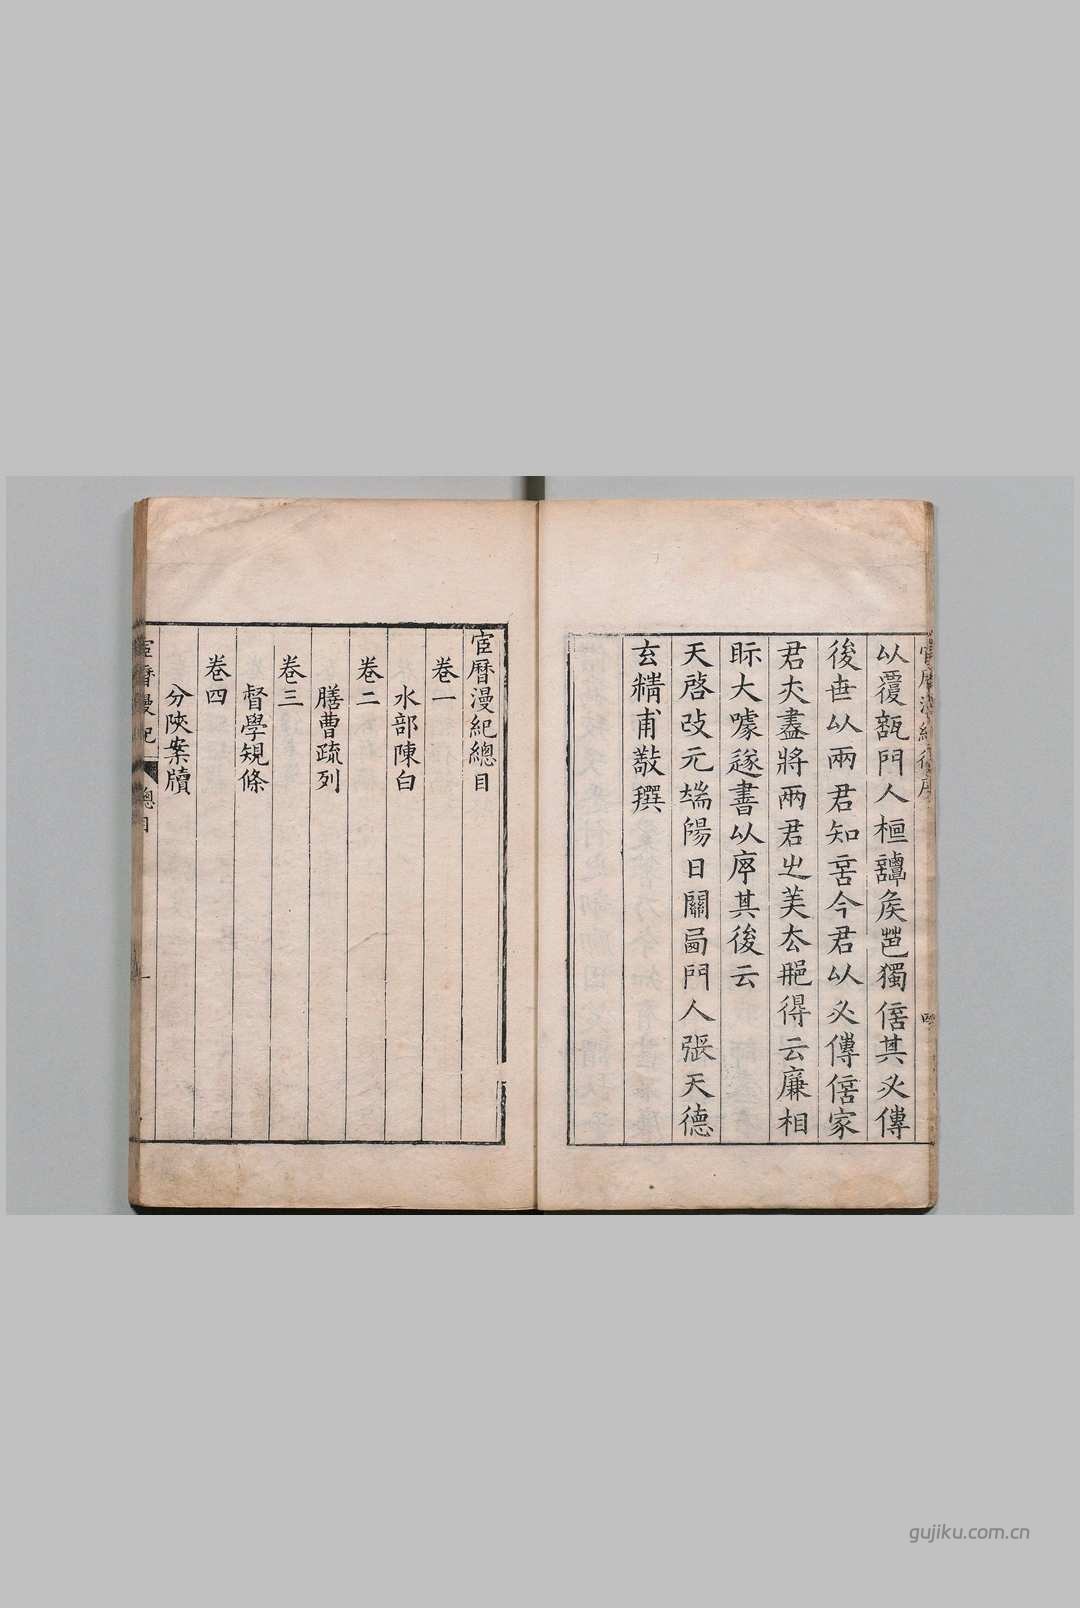 以覆瓿門人桓譚矦芭獨信其必傳
後世以兩君知言今君以必傳信家
君夾盡將兩君之美太能得云廉相
眎大噱遂書以序其後云
天啓改元端陽日關西門人張天德
玄精甫敬撰
宦曆漫紀總目
卷一
水部陳白
卷二
膳曹疏列
卷三
督學規條
卷四
分陝案牘
宦曆漫紀
總目
一
gujiku.com.cn